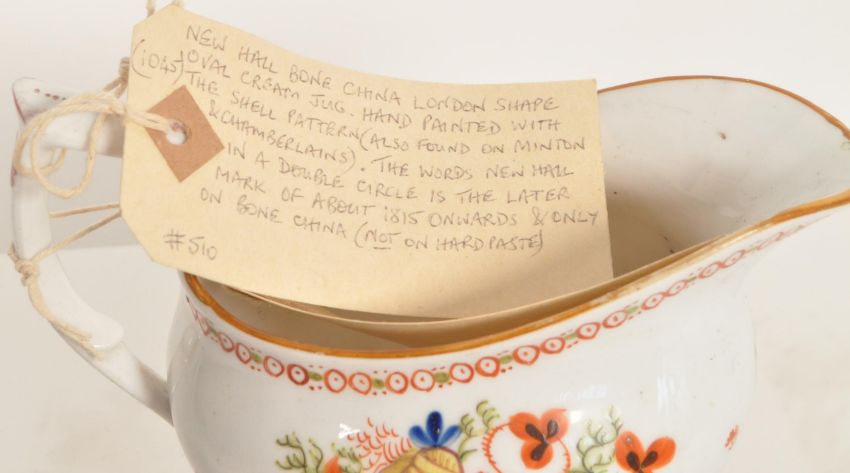 NEW HALL BONE CHINA LONDON SHAPE
(1045) OVAL CREAM JUG. HAND PAINTED WITH
THE SHELL PATTERN (ALSO FOUND ON MINTON
& CHAMBERLAINS). THE WORDS NEW HALL
IN A DOUBLE CIRCLE IS THE LATER
MARK OF ABOUT 1815 ONWARDS & ONLY
ON BONE CHINA (NOT ON HARD PASTE)
#510